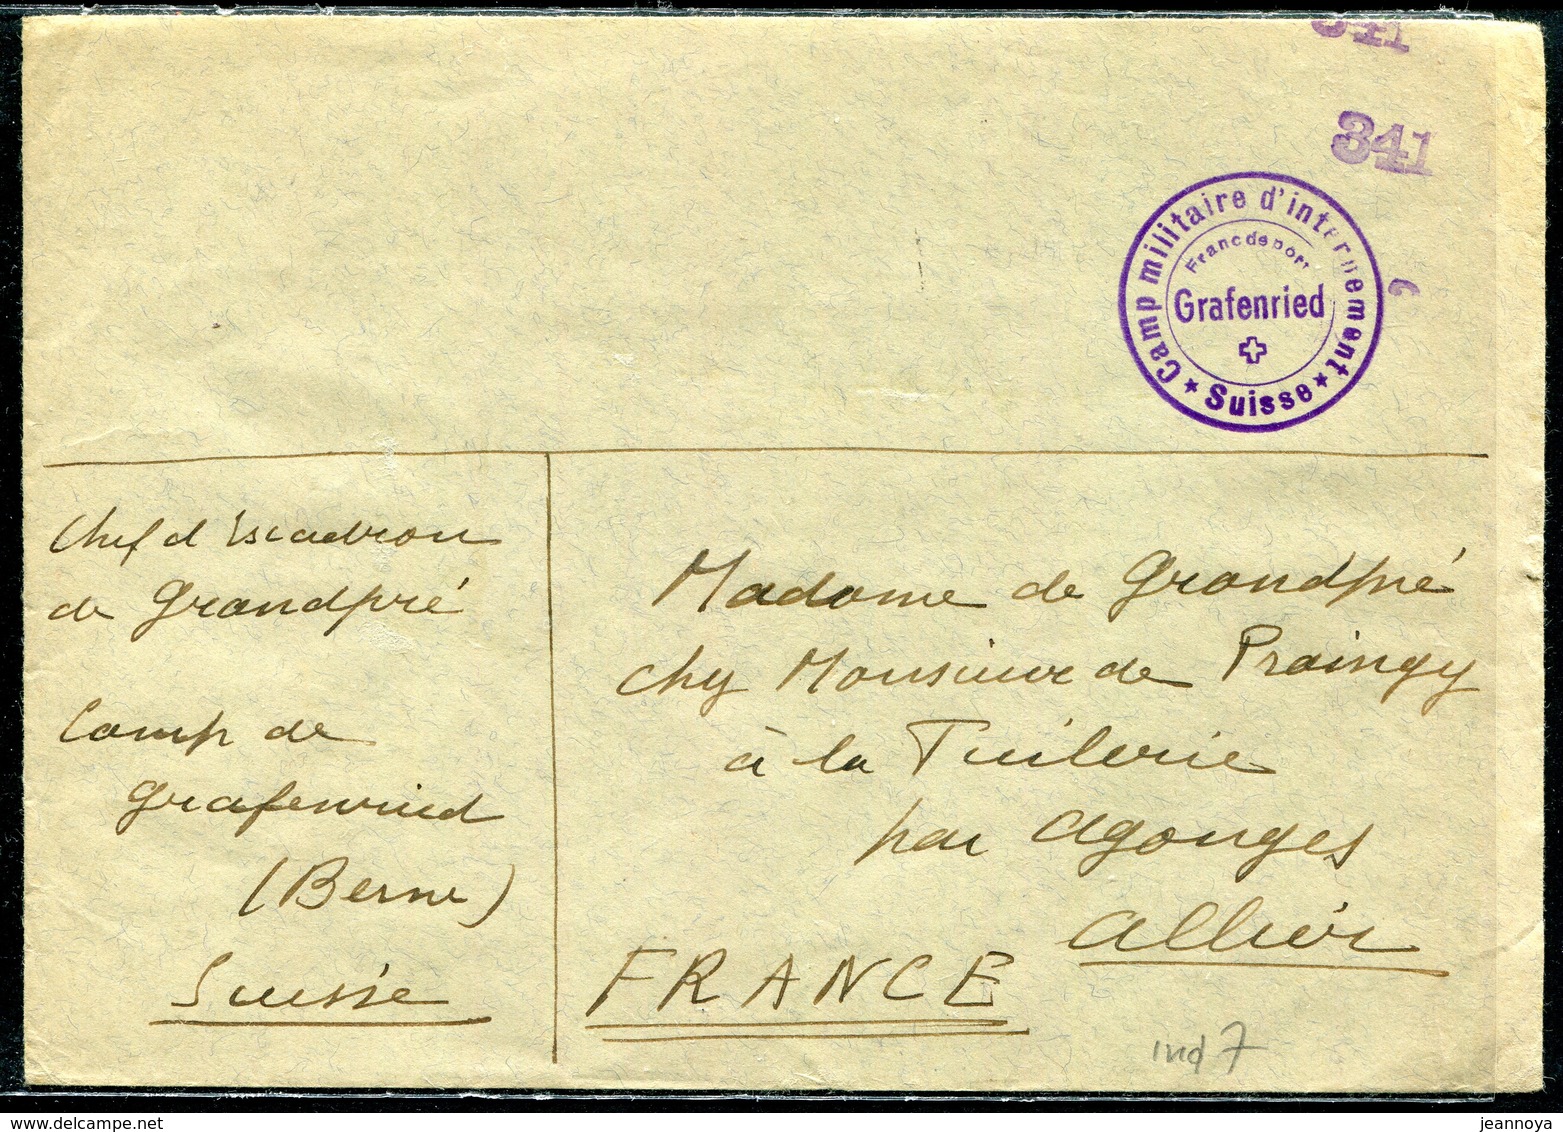 341
341
Camp militaire d'internement
Franc de port
Grafenried
Suisse
6
Chef d'Escadron
de Grandpré
Camp de
Grafenried
(Berne)
Suisse
Madame de Grandpré
chez Monsieur de Praingy
à la Tuilerie
par Agonges
Allier
FRANCE
ind 7
jeannoya